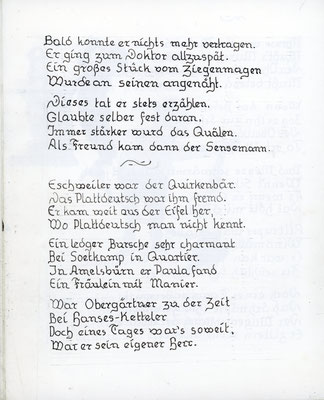 Bald konnte er nichts mehr vertragen.
Er ging zum Doktor allzuspät.
Ein großes Stück vom Ziegenmagen
Wurde an seinen angenäht.
Dieses tat er stets erzählen.
Glaubte selber fest daran.
Immer stärker wurd das Quälen.
Als Freund kam dann der Sensemann.
Eschweiler war der Quirkenbär.
Das Plattdeutsch war ihm fremd.
Er kam weit aus der Eifel her,
Wo Plattdeutsch man nicht kennt.
Ein lediger Bursche sehr charmant
Bei Soetkamp in Quartier.
In Amelsbürn er Paula fand
Ein Fräulein mit Manier.
War Obergärtner zu der Zeit
Bei Hanses-Ketteler
Doch eines Tages war's soweit,
War er sein eigener Herr.